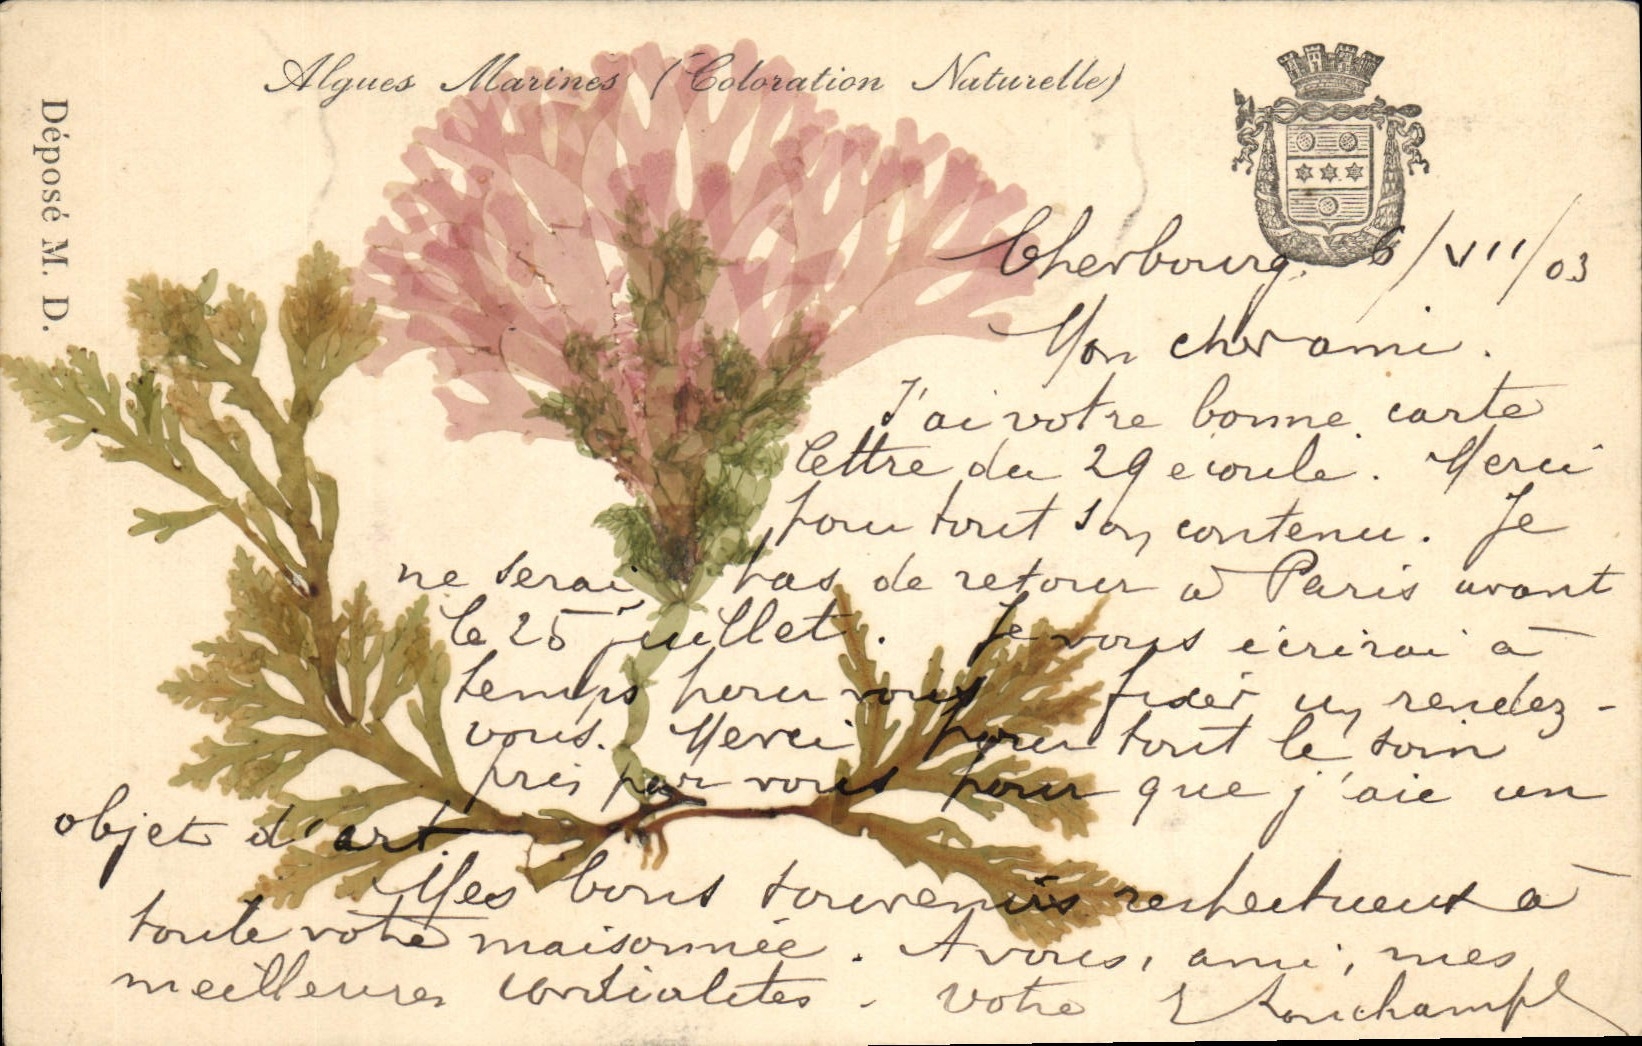 Algues Marines (Coloration Naturelle)
Déposé M. D.
Cherbourg. 6/VII/03
Mon cher ami.
J'ai votre bonne carte
lettre du 29 ecoulé. Merci
pour tout son contenu. Je
ne serai pas de retour à Paris avant
le 25 juillet. Je vous écrirai à
temps pour vous fixer un rendez-
vous. Merci pour tout le soin
pris par vous pour que j'aie un
objet d'art
Mes bons souvenirs respectueux à
toute votre maisonnée. A vous, ami, mes
meilleures cordialités. Votre